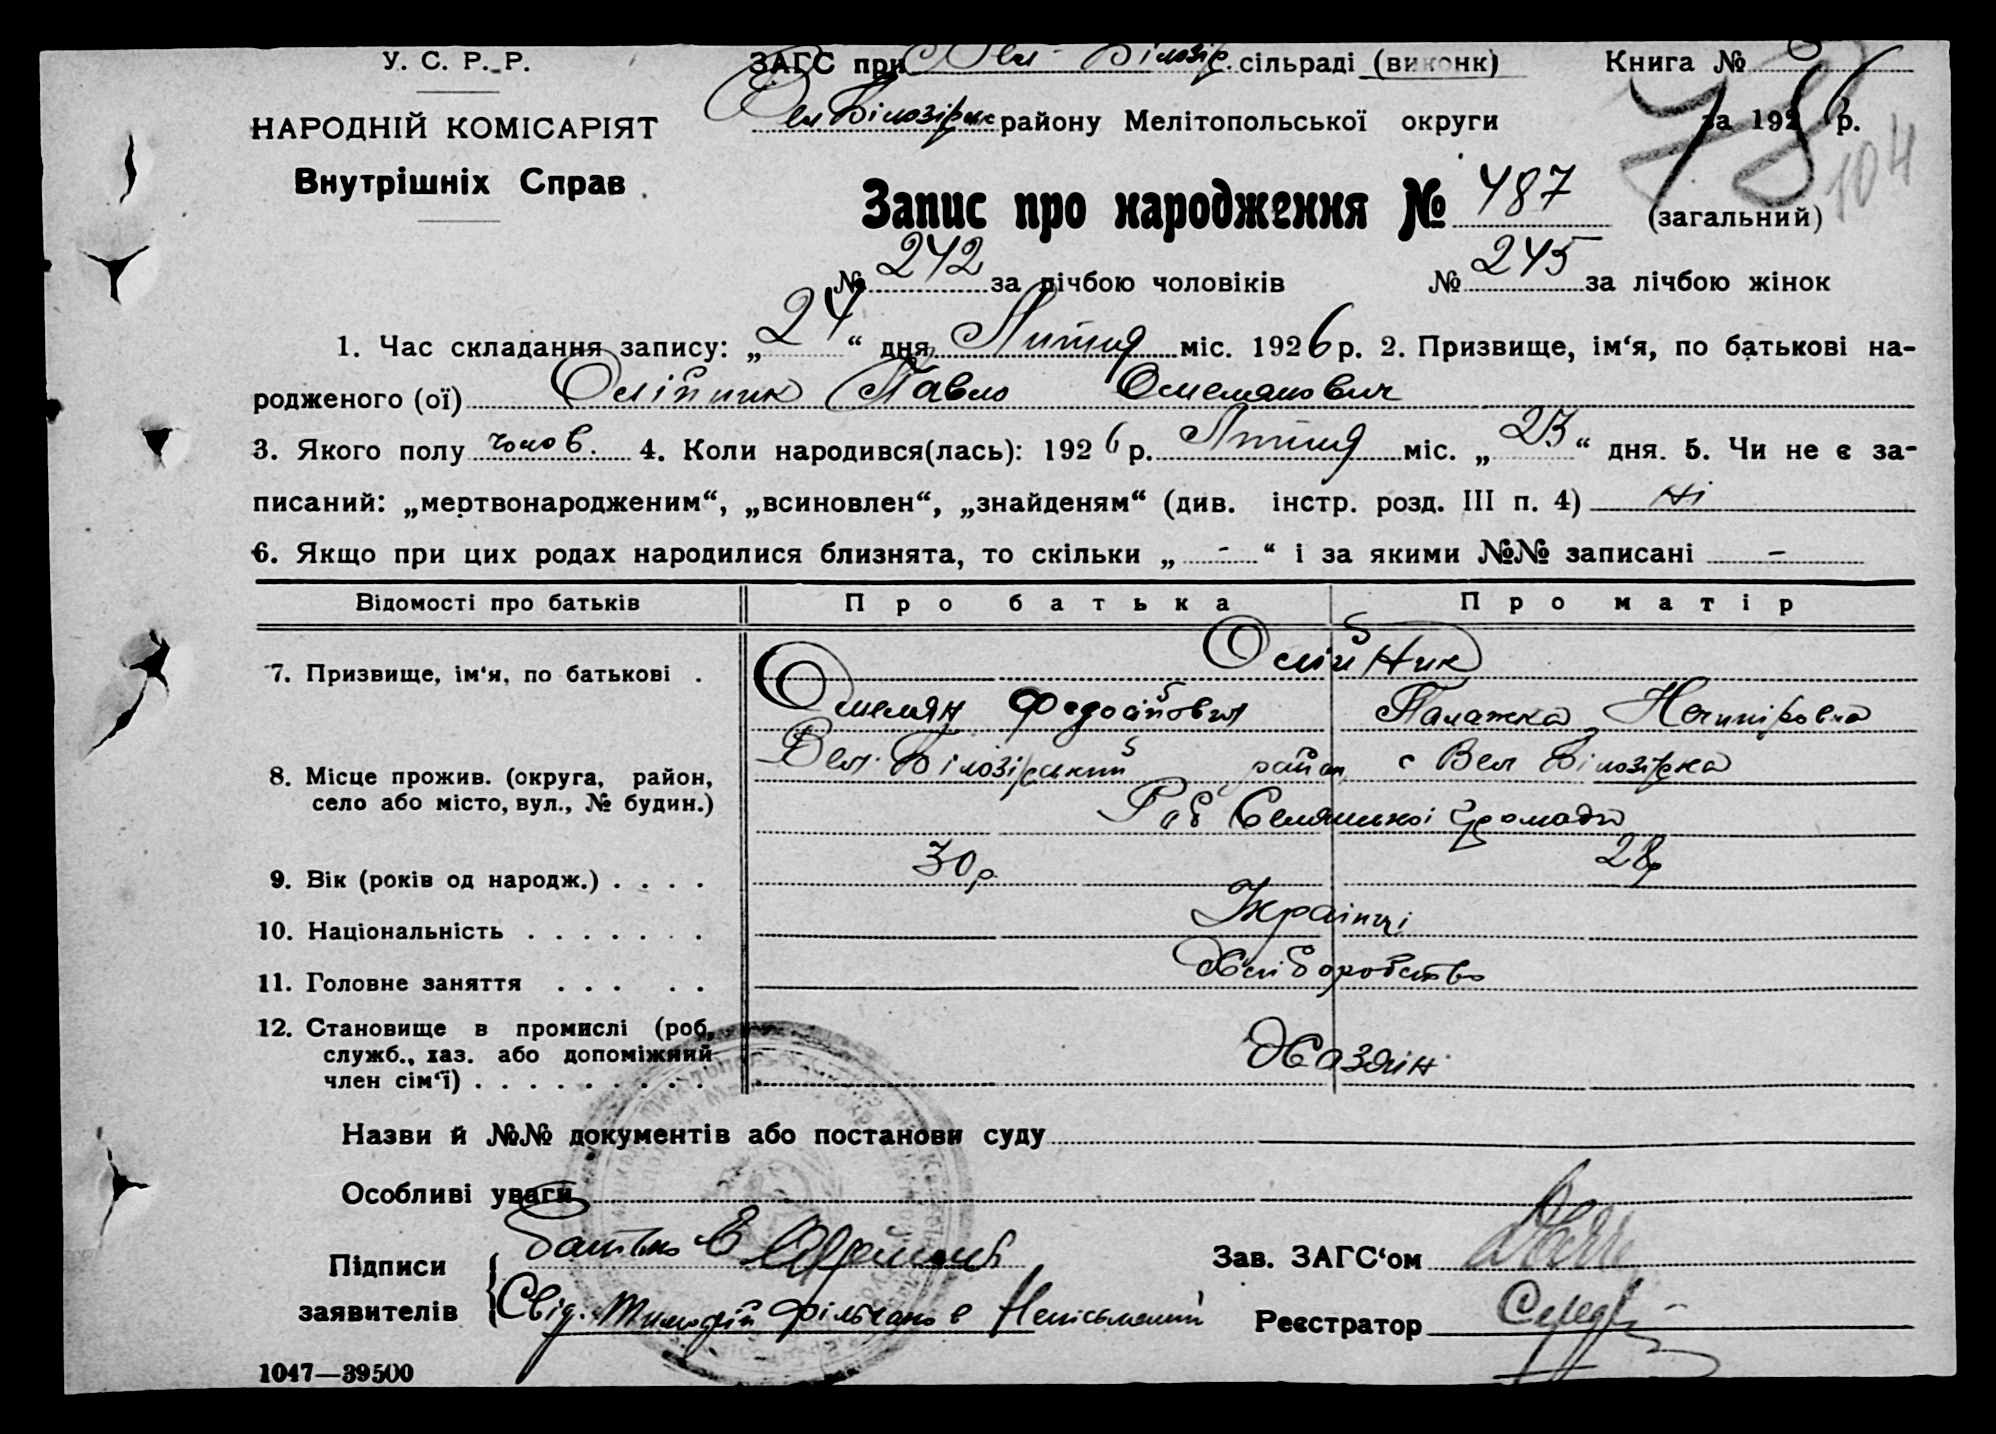 У. С. Р. Р.
ЗАГС при Вел-Білозір. сільраді (виконк)
Книга №
НАРОДНІЙ КОМІСАРІЯТ
Вел Білозірськ району Мелітопольської округи
за 1926 р.
78
104
Внутрішніх Справ
Запис про народження № 487 (загальний)
№ 242 за лічбою чоловіків № 245 за лічбою жінок
1. Час складання запису: „24“ дня Лютня міс. 1926 р. 2. Призвище, ім‘я, по батькові на-
родженого (ої) Олійник Павло Омелянович
3. Якого полу чолов. 4. Коли народився(лась): 1926 р. Лютня міс. „23“ дня. 5. Чи не є за-
писаний: „мертвонародженим“, „всиновлен“, „знайденям“ (див. інстр. розд. III п. 4) Ні
6. Якщо при цих родах народилися близнята, то скільки „ - “ і за якими №№ записані -
Відомості про батьків Про батька Про матір
7. Призвище, ім‘я, по батькові . Олійник
Омелян Федосійович Палажка Ничипіровна
8. Місце прожив. (округа, район, Вел. Білозірський район с Вел Білозірка
село або місто, вул., № будин.) Селянської громади
9. Вік (років од народж.) . . . . 30 р 28 р
10. Національність . . . . . . . Українці
11. Головне заняття . . . . . Хліборобство
12. Становище в промислі (роб,
служб., хаз. або допоміжний Хазяїн
член сім‘ї) . . . . . . . . .
Назви й №№ документів або постанови суду
Особливі уваги
Підписи Батько
Зав. ЗАГС‘ом
заявителів Свід. Тимофій Фільчаков Неписьменний
Реєстратор
1047—39500